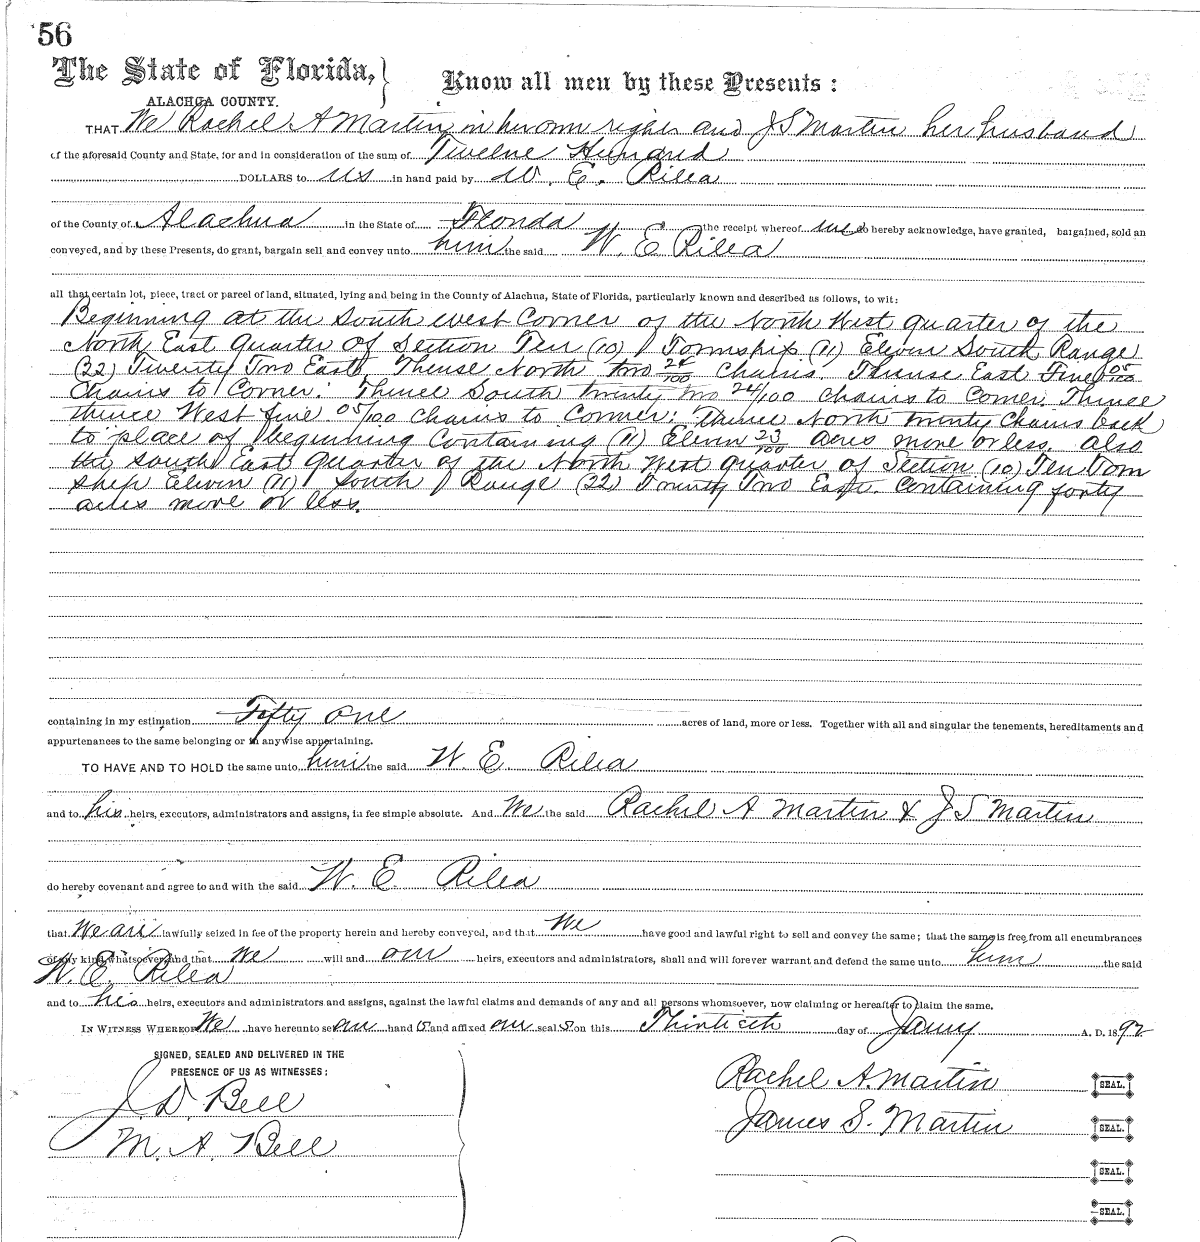 56
The State of Florida,
ALACHUA COUNTY.
Know all men by these Presents:
THAT We Rachel A Martin in her own right and J S Martin her husband
of the aforesaid County and State, for and in consideration of the sum of Twelve Hundred
DOLLARS to us in hand paid by W. E. Rilea
of the County of Alachua in the State of Florida the receipt whereof we do hereby acknowledge, have granted, bargained, sold an
conveyed, and by these Presents, do grant, bargain sell and convey unto him the said W. E Rilea
all that certain lot, piece, tract or parcel of land, situated, lying and being in the County of Alachua, State of Florida, particularly known and described as follows, to wit:
Beginning at the South west Corner of the North West quarter of the
North East Quarter of Section Ten (10) Township (11) Eleven South, Range
(22) Twenty Two East, Thense North two 24/100 Chains. Thense East Five 05/100
Chains to Corner: Thence South twenty two 24/100 Chains to Corner: Thence
thence West five 05/100 Chains to Corner: Thence North twenty Chains back
to place of beginning Containing (11) Eleven 23/100 acres more or less. also
the South East Quarter of the North West quarter of Section (10) Ten Town
ship Eleven (11) South Range (22) Twenty Two East. Containing forty
acres more or less.
containing in my estimation Fifty one acres of land, more or less. Together with all and singular the tenements, hereditaments and
appurtenances to the same belonging or in anywise appertaining.
TO HAVE AND TO HOLD the same unto him the said W. E Rilea
and to his heirs, executors, administrators and assigns, in fee simple absolute. And We the said Rachel A Martin & J S Martin
do hereby covenant and agree to and with the said W. E. Rilea
that We are lawfully seized in fee of the property herein and hereby conveyed, and that We have good and lawful right to sell and convey the same; that the same is free from all encumbrances
of any kind whatsoever and that We will and our heirs, executors and administrators, shall and will forever warrant and defend the same unto him the said
W. E. Rilea
and to his heirs, executors and administrators and assigns, against the lawful claims and demands of any and all persons whomsoever, now claiming or hereafter to claim the same.
IN WITNESS WHEREOF We have hereunto set our hand s and affixed our seal s on this Thirtieth day of Jany A. D. 1892
SIGNED, SEALED AND DELIVERED IN THE
PRESENCE OF US AS WITNESSES:
J. D. Bell
M. A. Bell
Rachel A. Martin SEAL.
James S. Martin SEAL.
SEAL.
SEAL.